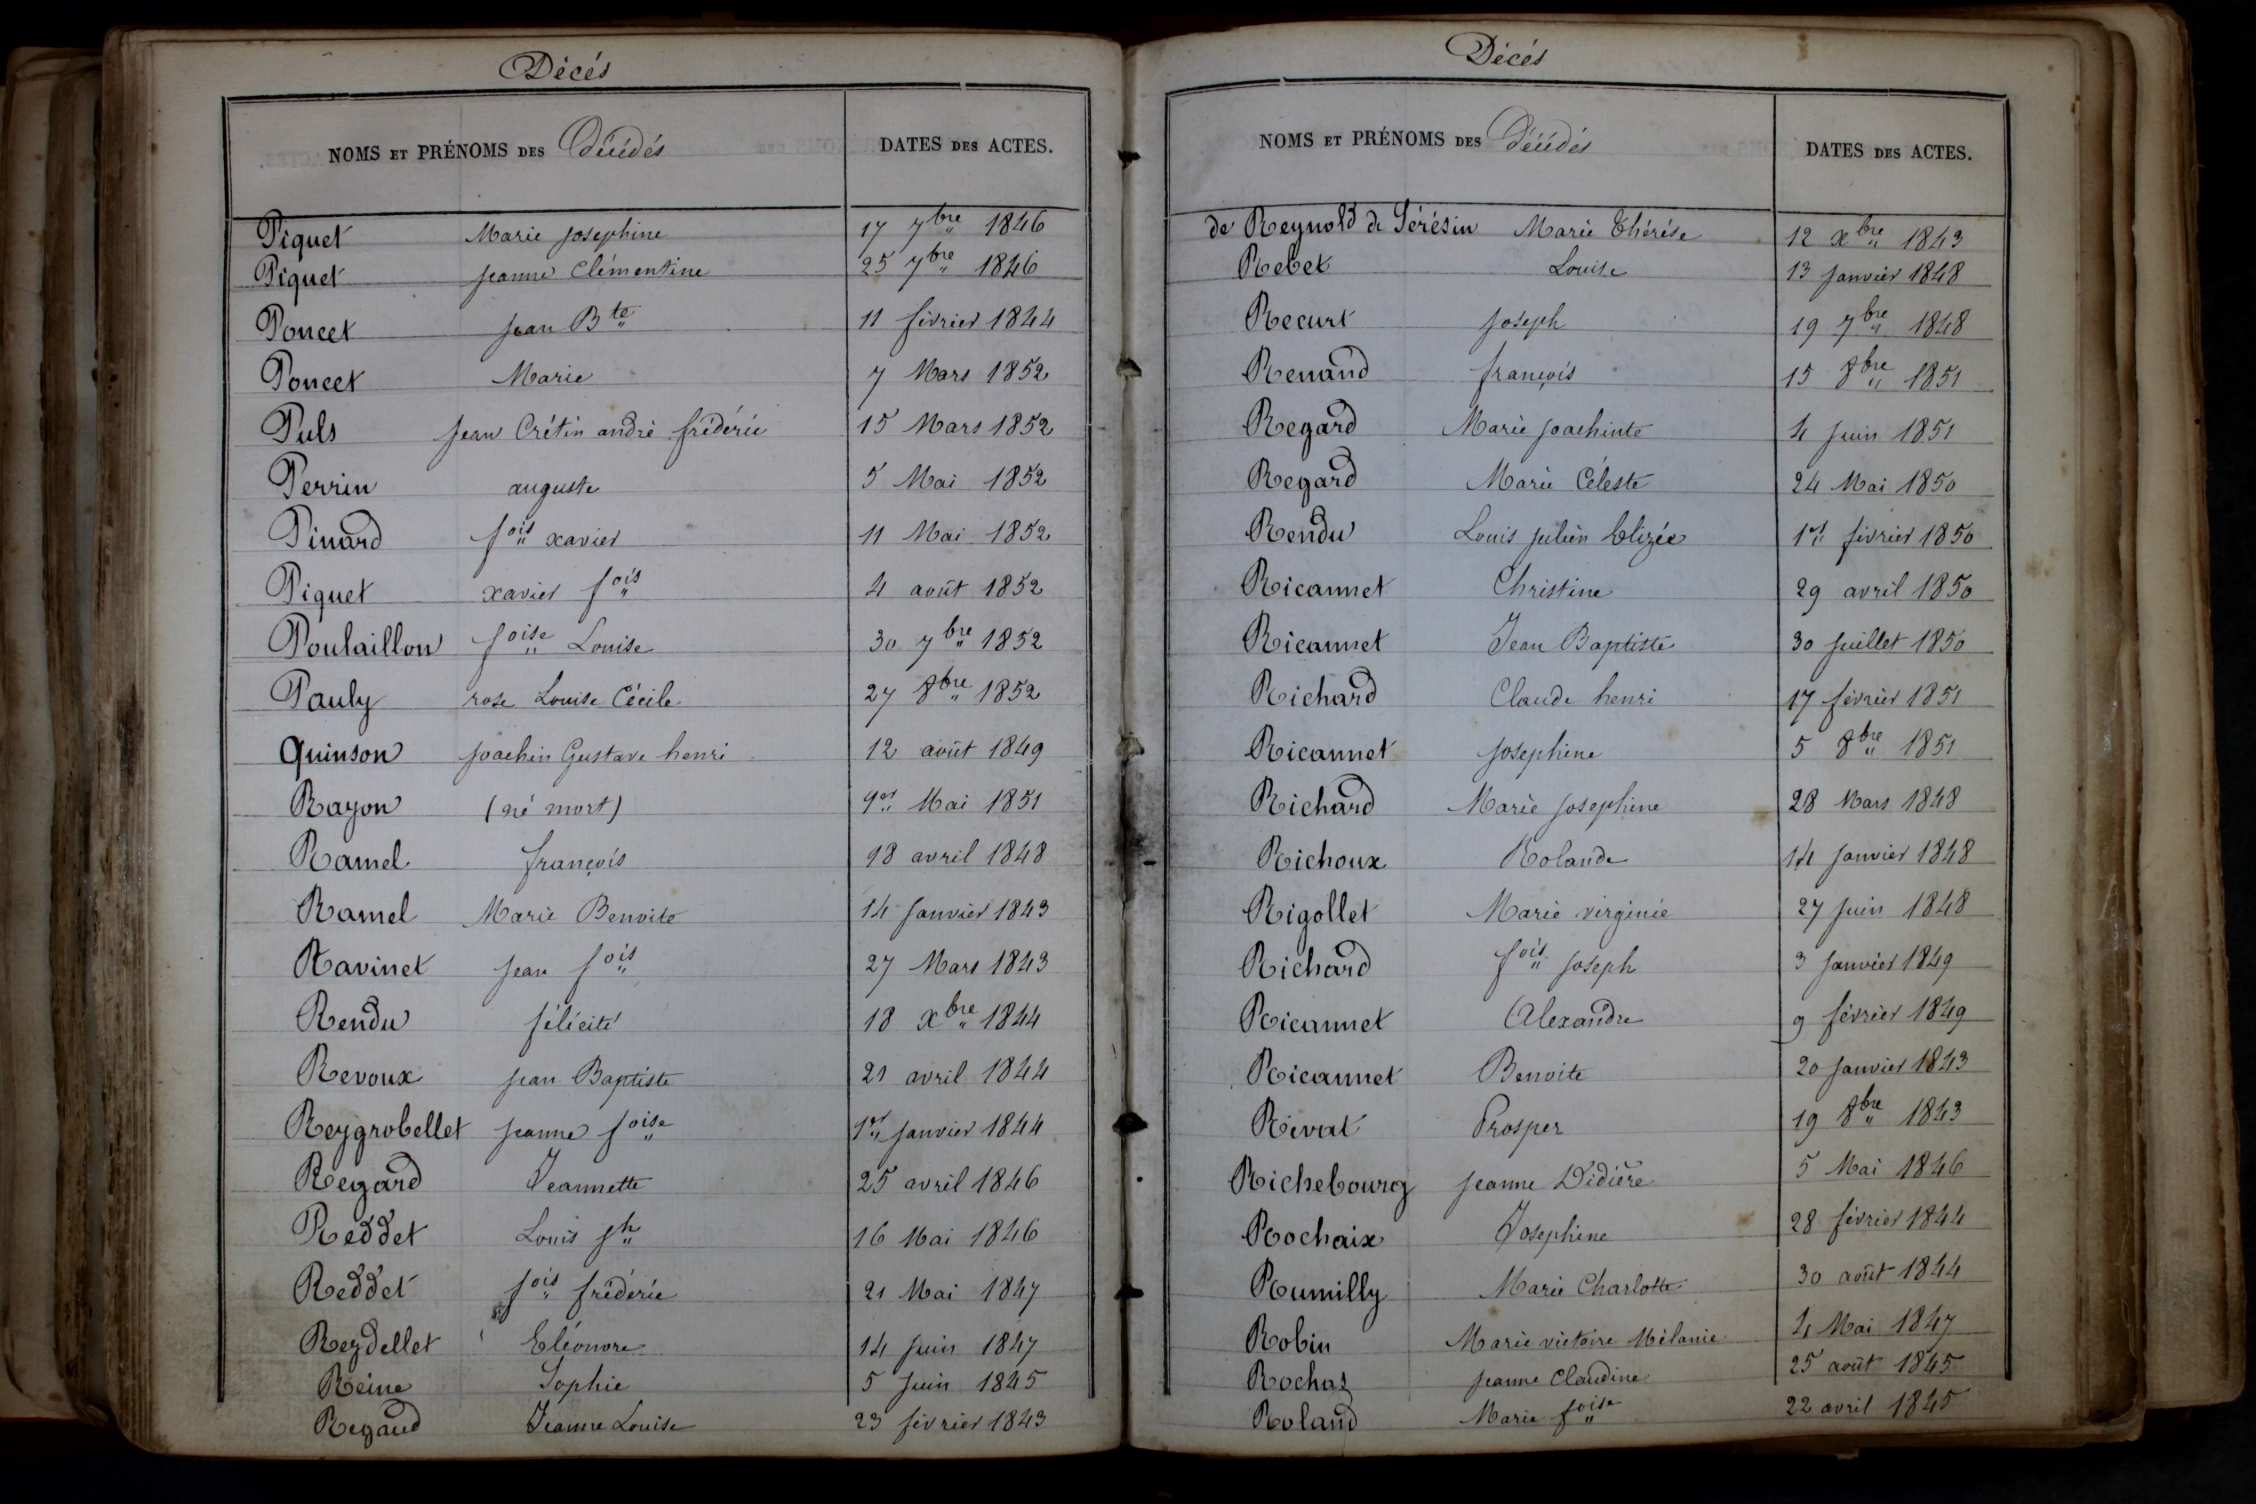 Décés
NOMS ET PRÉNOMS DES Décédés DATES DES ACTES.
Piquet Marie Josephine 17 7bre 1846
Piquet Jeanne Clémentine 25 7bre 1846
Poncet Jean Bte 11 février 1844
Poncet Marie 7 Mars 1852
Puls Jean Crétin andré fréderic 15 Mars 1852
Perrin auguste 5 Mai 1852
Pinard fois xavier 11 Mai 1852
Piquet xavier fois 4 août 1852
Poulaillon foise Louise 30 7bre 1852
Pauly rose Louise Cécile 27 8bre 1852
Quinson Joachin Gustave henri 12 août 1849
Rayon (né mort) 9 Mai 1851
Ramel françois 18 avril 1848
Ramel Marie Benoite 14 Janvier 1843
Ravinet Jean fois 27 Mars 1843
Rendu félicité 18 xbre 1844
Revoux Jean Baptiste 21 avril 1844
Reygrobellet Jeanne foise 1er Janvier 1844
Regard Jeannette 25 avril 1846
Reddet Louis Jh 16 Mai 1846
Reddet fois fréderic 21 Mai 1847
Reydellet Eléonore 14 Juin 1847
Reine Sophie 5 Juin 1845
Regaud Jeanne Louise 23 février 1843
Décés
NOMS ET PRÉNOMS DES Décédés DATES DES ACTES.
de Reynold de Sérésin Marie Thérése 12 xbre 1843
Rebet Louise 13 Janvier 1848
Recurt Joseph 19 7bre 1848
Renand françois 15 8bre 1851
Regard Marie Joachinte 4 Juin 1851
Regard Marie Céleste 24 Mai 1850
Rendu Louis Julien Elizée 1er février 1850
Ricannet Christine 29 avril 1850
Ricannet Jean Baptiste 30 Juillet 1850
Richard Claude henri 17 février 1851
Ricannet Josephine 5 8bre 1851
Richard Marie Josephine 28 Mars 1848
Richoux Rolande 14 Janvier 1848
Rigollet Marie virginie 27 Juin 1848
Richard fois Joseph 3 Janvier 1849
Ricannet Alexandre 9 février 1849
Ricannet Benoite 20 Janvier 1843
Rivat Prosper 19 8bre 1843
Richebourg Jeanne Didière 5 Mai 1846
Rochaix Josephine 28 février 1844
Rumilly Marie Charlotte 30 août 1844
Robin Marie victoire Mélanie 4 Mai 1847
Rochas Jeanne Claudine 25 août 1845
Roland Marie foise 22 avril 1845